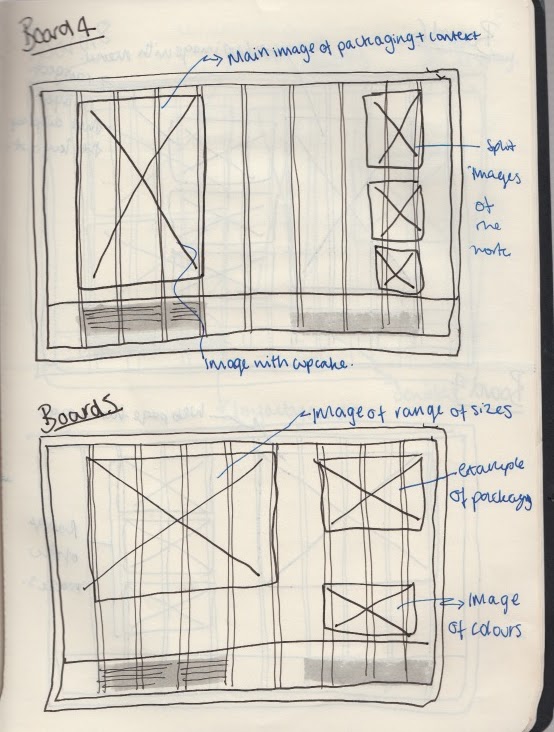 Board 4
Main image of packaging + context
Split
images
of
the
work
Image with cupcake.
Board 5
Image of range of sizes
example
of packagy
Image
of colours